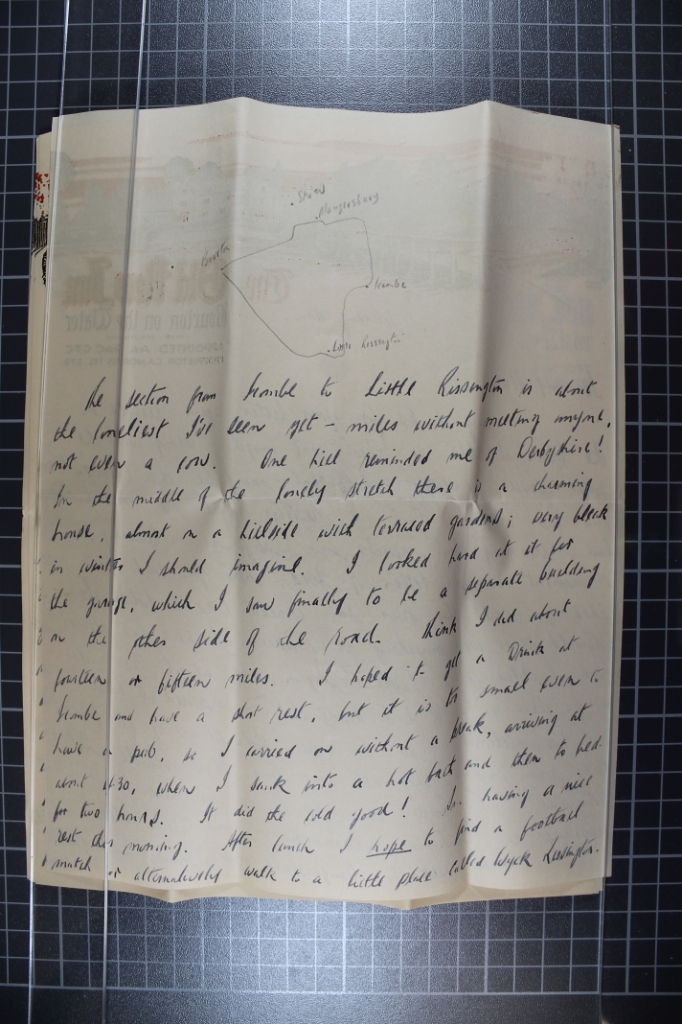 Stow
Maugersbury
Icombe
Little Rissington
The section from Icombe to Little Rissington is about
the loneliest I've seen yet – miles without meeting anyone,
not even a cow. One hill reminded me of Derbyshire!
In the middle of the lonely stretch there is a charming
house, almost on a hillside with terraced gardens; very bleak
in winter I should imagine. I looked hard at it for
the garage, which I saw finally to be a separate building
on the other side of the road. Think I did about
fourteen or fifteen miles. I hoped to get a Drink at
Icombe and have a short rest, but it is to small even to
have a pub, so I carried on without a break, arriving at
about 4.30, when I sank into a hot bath and then to bed
for two hours. It did the cold good! I'm having a nice
rest this morning. After lunch I hope to find a football
match or alternatively walk to a little place called Wyck Rissington.